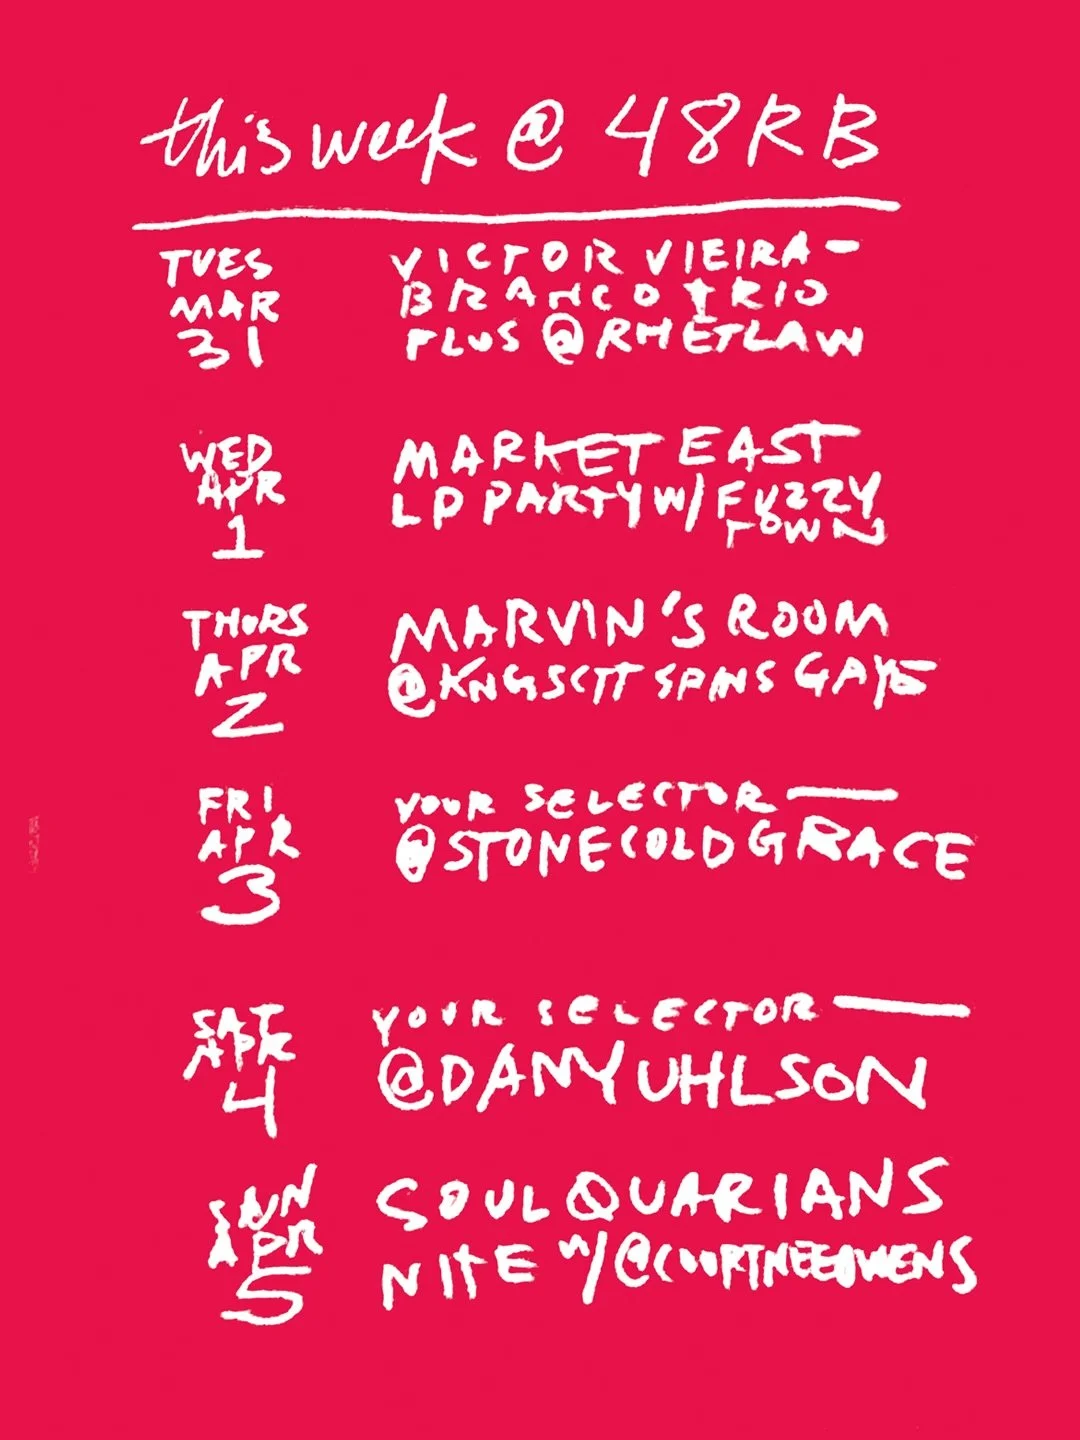 this week @ 48RB
TUES
MAR
31
VICTOR VIEIRA-
BRANCO TRIO
PLUS @RHETLAW
WED
APR
1
MARKET EAST
LP PARTY W/ FUZZY
TOWN
THURS
APR
2
MARVIN'S ROOM
@KNGSCTT SPINS GAYE
FRI
APR
3
YOUR SELECTOR —
@STONECOLDGRACE
SAT
APR
4
YOUR SELECTOR —
@DANYUHLSON
SUN
APR
5
SOULQUARIANS
NITE W/ @COURTNEEOWENS